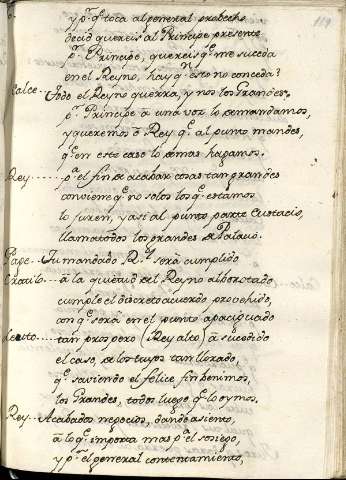 119
y pr. qe. toca al general probecho
decid quereis al Principe presente
pr. Principe, quereis qe. me suceda
en el Reyno, hay qn. esto no conceda?
Alce - Todo el Reyno querra, y nos los Grandes.
pr. Principe a una voz lo demandamos,
y queremos ó Rey qe. al punto mandes,
qe. en este caso lo demas hagamos.
Rey ---- pa. el fin de acabar cosas tan grandes
conviene qe. no solos los qe. estamos
lo juren, y asi al punto parte Eustacio,
llama todos los grandes de Palacio.
Page - Tu mandado Rl. será cumplido
à la quietud del Reyno alborotado
cumple el discreto acuerdo provehido,
con qe. será en el punto apaciguado
tan prospero (Rey alto) à sucedido
el caso, de los tuyos tan llorado,
qe. saviendo el felice fin benimos,
los Grandes, todos luego qe. lo oymos.
Rey -- Acabados negocios, dando asiento,
à lo qe. importa mas pa. el sosiego,
y pa. el general contentamiento,